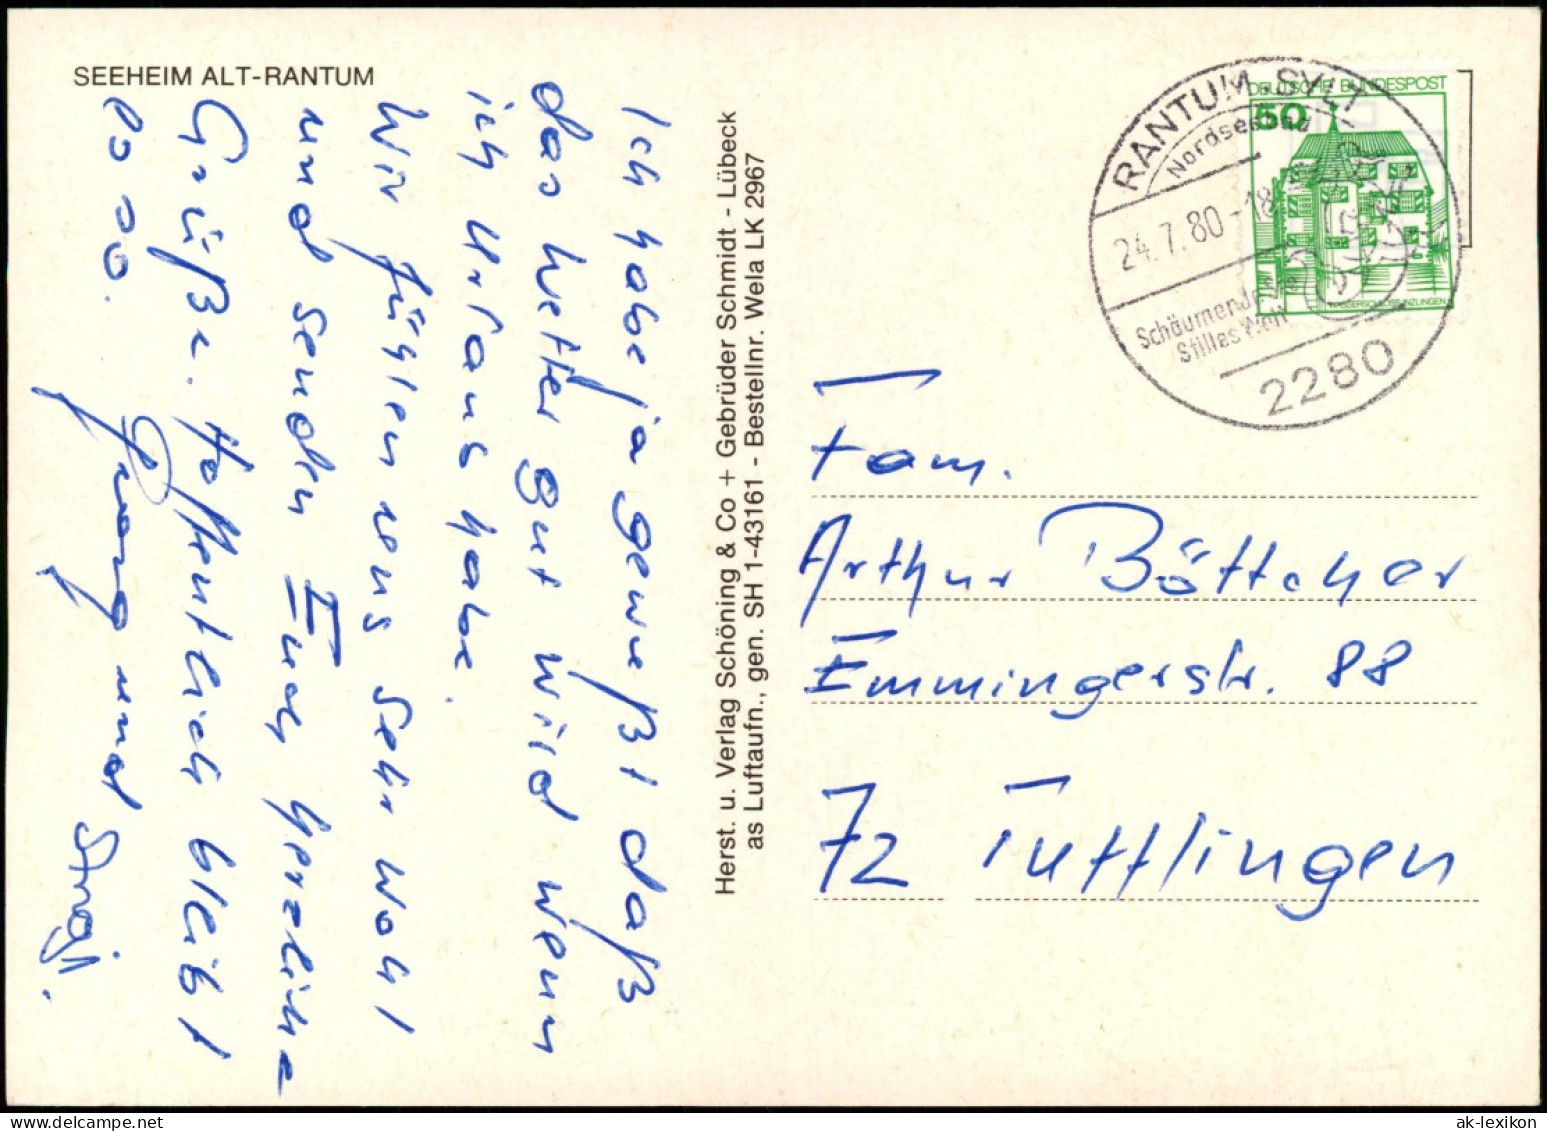 SEEHEIM ALT-RANTUM
Ich habe ja gewußt daß
das Wetter gut wird wenn
ich Urlaub habe.
Wir fühlen uns sehr wohl
und senden Euch herzliche
Grüße. Hoffentlich bleibt
es so.
und
Herst. u. Verlag Schöning & Co + Gebrüder Schmidt - Lübeck
as Luftaufn., gen. SH 1-43161 - Bestellnr. Wela LK 2967
DEUTSCHE BUNDESPOST
50
RANTUM SYLT
Nordseebad
24.7.80-18
Schäumende
Stilles Watt
2280
Fam.
Arthur Böttcher
Emmingerstr. 88
72 Tuttlingen
ak-lexikon